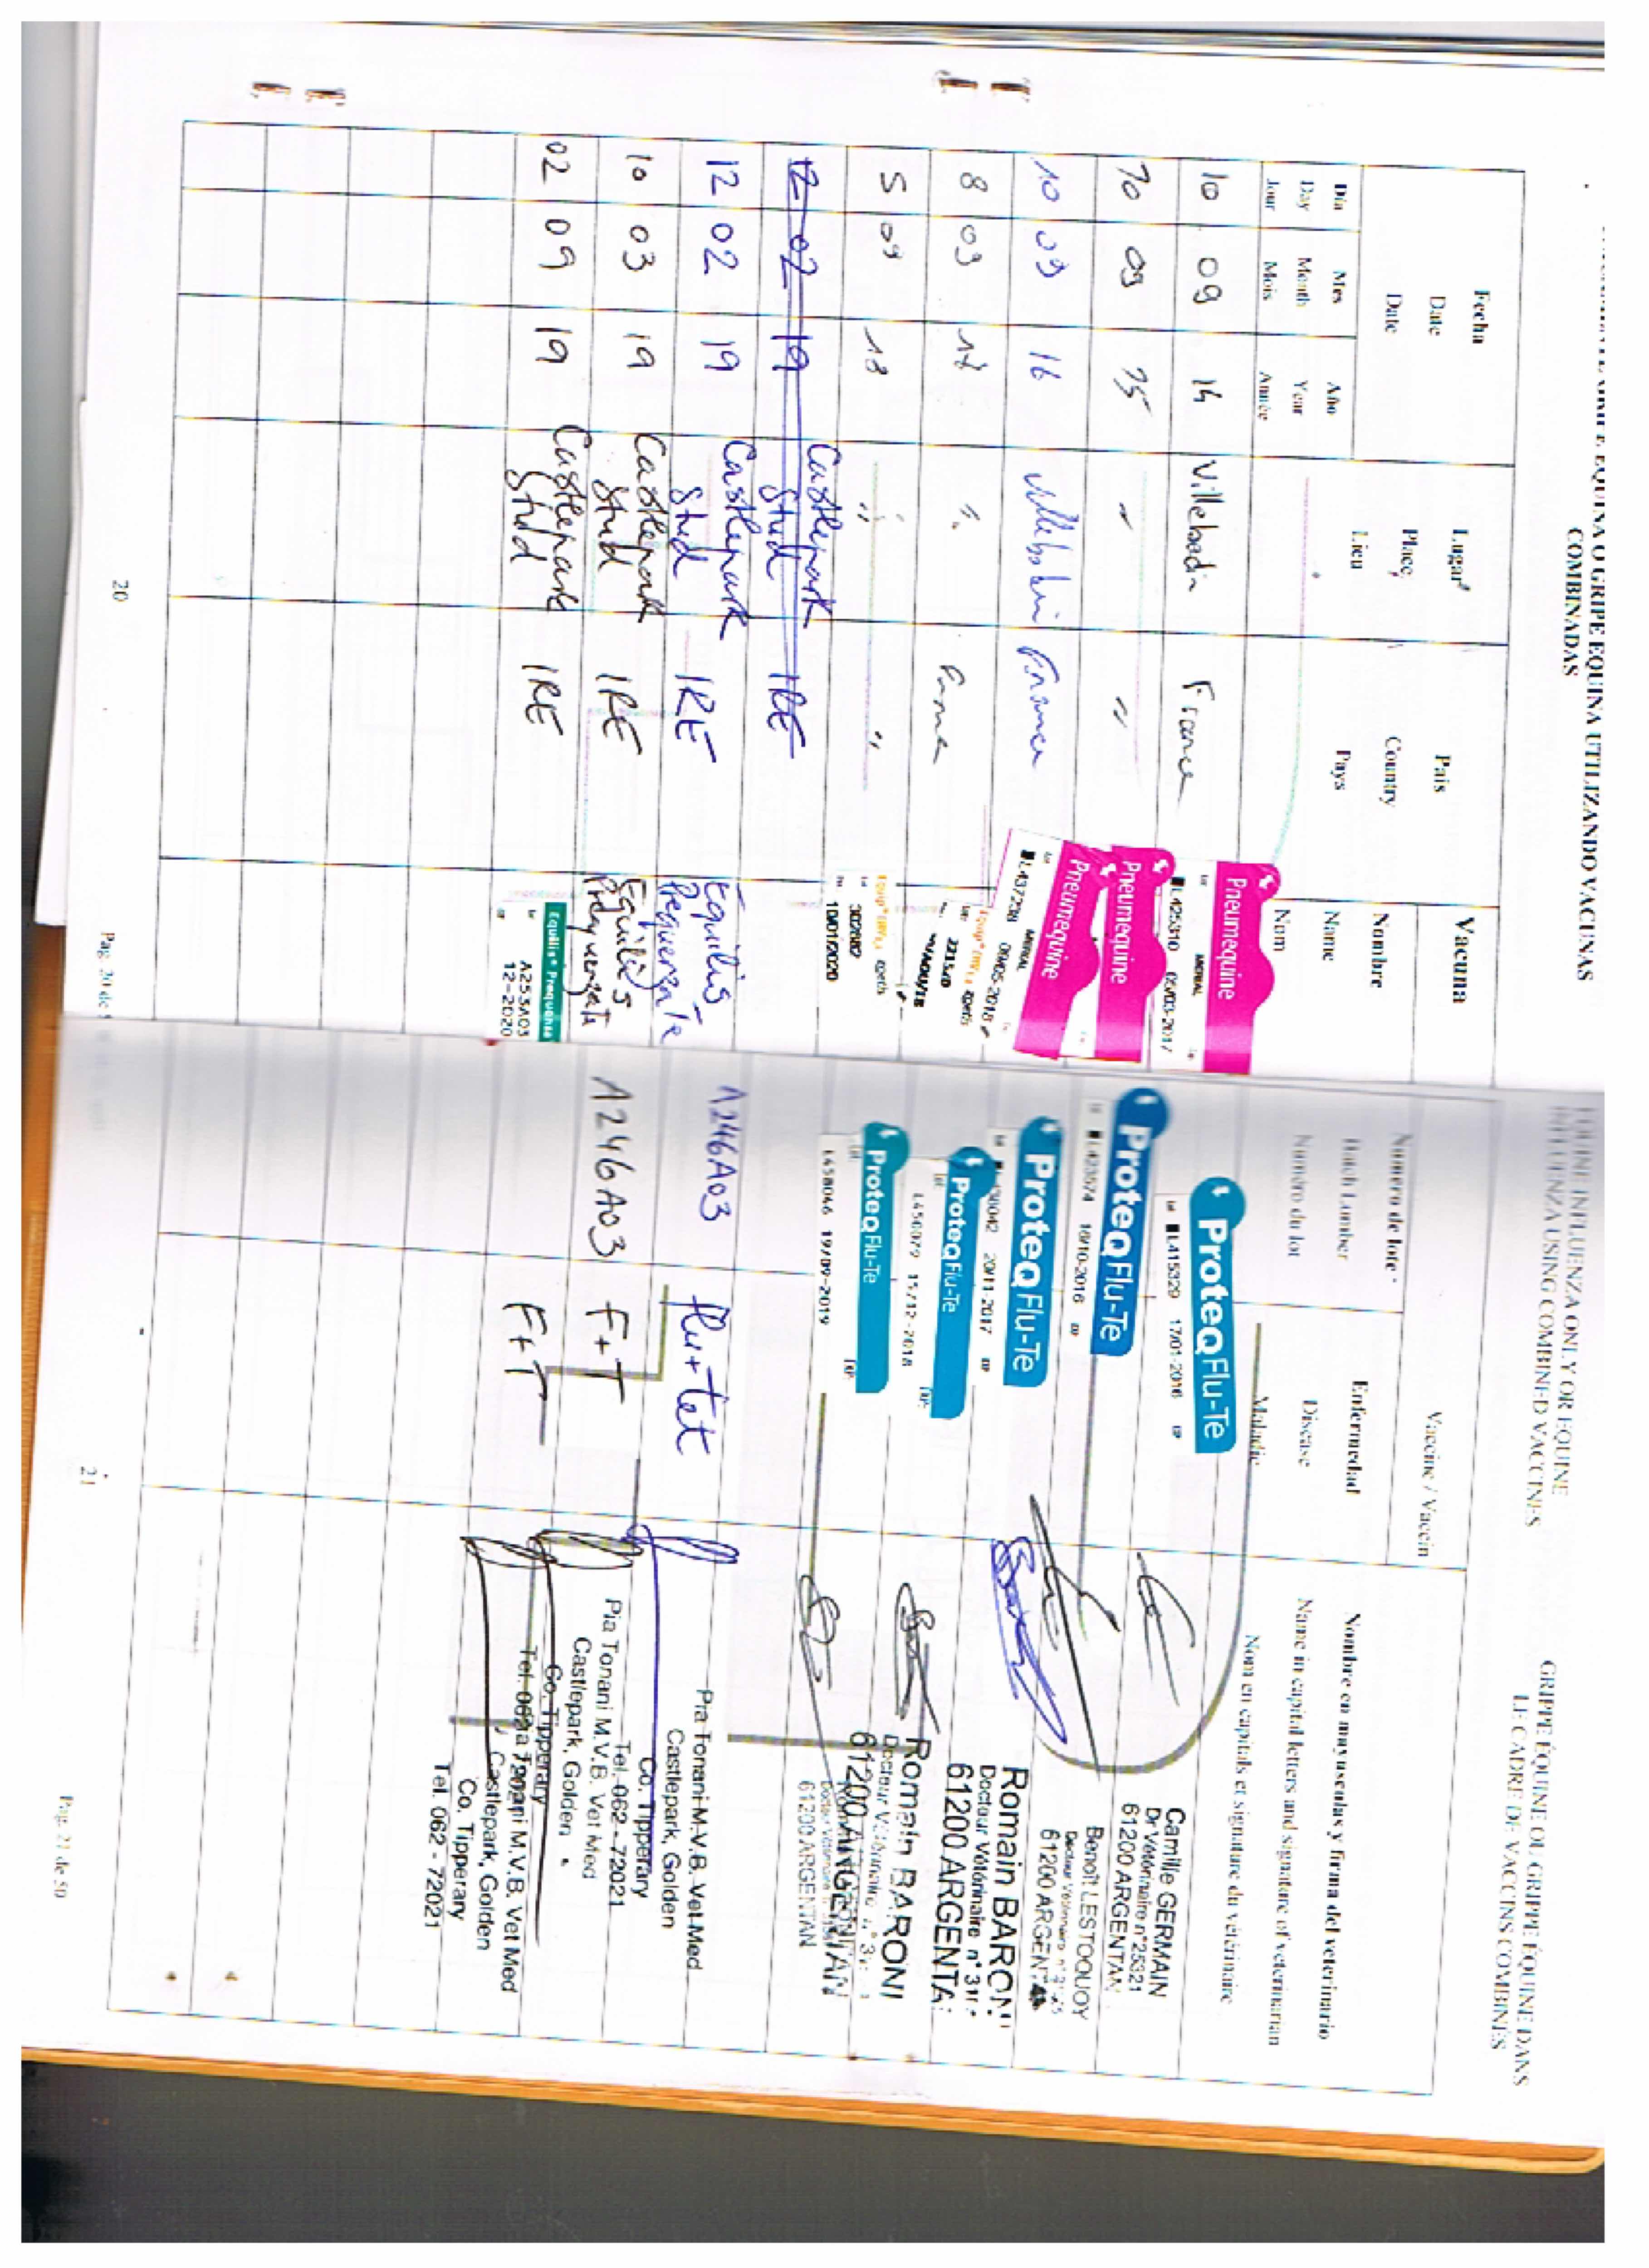 EQUINA O GRIPE EQUINA UTILIZANDO VACUNAS
COMBINADAS
Fecha
Date
Date
Día Mes Año
Day Month Year
Jour Mois Année
Lugar
Place,
Lieu
País
Country
Pays
Vacuna
Nombre
Name
Nom
10 09 14 Villebadin France
Pneumequine
L425310 MERIAL 05/03-2017
10 09 15 " "
Pneumequine
10 09 16 France
Pneumequine
L437238 MERIAL 09/05-2018
8 09 17
5 09 18 " "
302682
10/01/2020
12 02 19 Castlepark Stud IRE
12 02 19 Castlepark Stud IRE Equilis Prequenza Te
10 03 19 Castlepark Stud IRE Equilis Prequenza Te
02 09 19 Castlepark Stud IRE
Equilis® Prequenza
A253A03
12-2020
20
Pag. 20 de
EQUINE INFLUENZA ONLY OR EQUINE
INFLUENZA USING COMBINED VACCINES
GRIPPE ÉQUINE OU GRIPPE ÉQUINE DANS
LE CADRE DE VACCINS COMBINÉS
Vaccine / Vaccin
Número de lote
Batch Number
Numéro du lot
Enfermedad
Disease
Maladie
Nombre en mayusculas y firma del veterinario
Name in capital letters and signature of veterinarian
Nom en capitals et signature du vétérinaire
ProteqFlu-Te
L415329 17/01-2016
Camille GERMAIN
Dr Vétérinaire n°25321
61200 ARGENTAN
ProteqFlu-Te
L423574 16/10-2016
Benoît LESTOQUOY
Docteur Vétérinaire
61200 ARGENTAN
ProteqFlu-Te
20/11-2017
Romain BARONI
Docteur Vétérinaire
61200 ARGENTA
ProteqFlu-Te
L450079 15/12-2018
Romain BARONI
Docteur Vétérinaire
61200 ARGENTAN
ProteqFlu-Te
L458046 19/09-2019
61200 ARGENTAN
A246A03 flu + tet
Pia Tonani M.V.B. Vet Med
Castlepark, Golden
Co. Tipperary
Tel. 062 - 72021
A246A03 F+T
Pia Tonani M.V.B. Vet Med
Castlepark, Golden
Co. Tipperary
Tel. 062 - 72021
F+T
Pia Tonani M.V.B. Vet Med
Castlepark, Golden
Co. Tipperary
Tel. 062 - 72021
21
Pag. 21 de 50